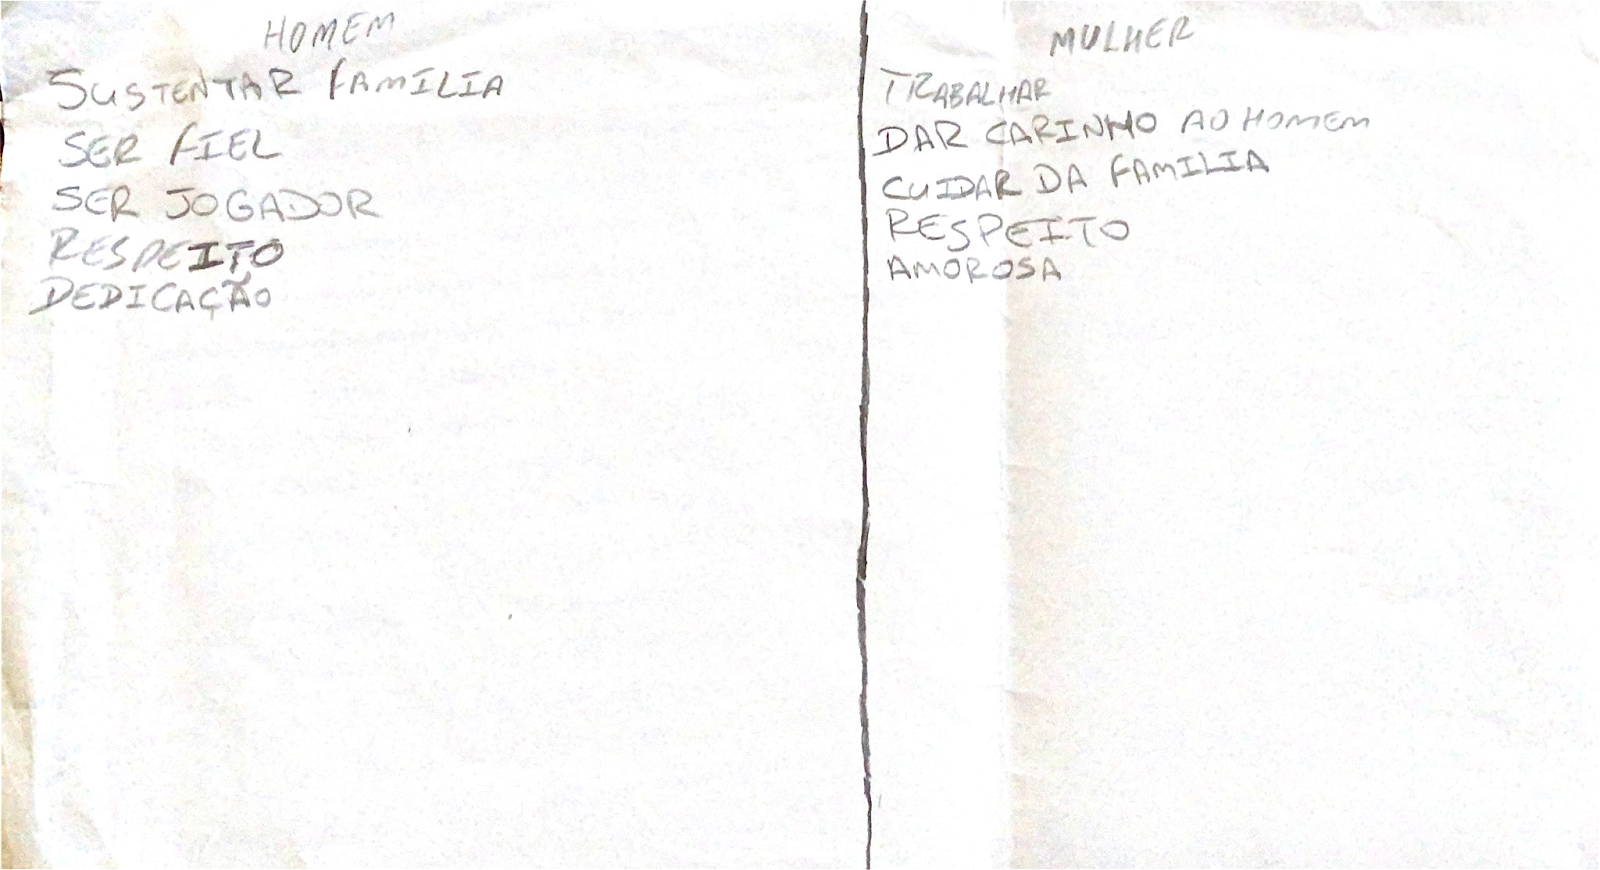 HOMEM
SUSTENTAR FAMILIA
SER FIEL
SER JOGADOR
RESPEITO
DEDICAÇÃO
MULHER
TRABALHAR
DAR CARINHO AO HOMEM
CUIDAR DA FAMILIA
RESPEITO
AMOROSA